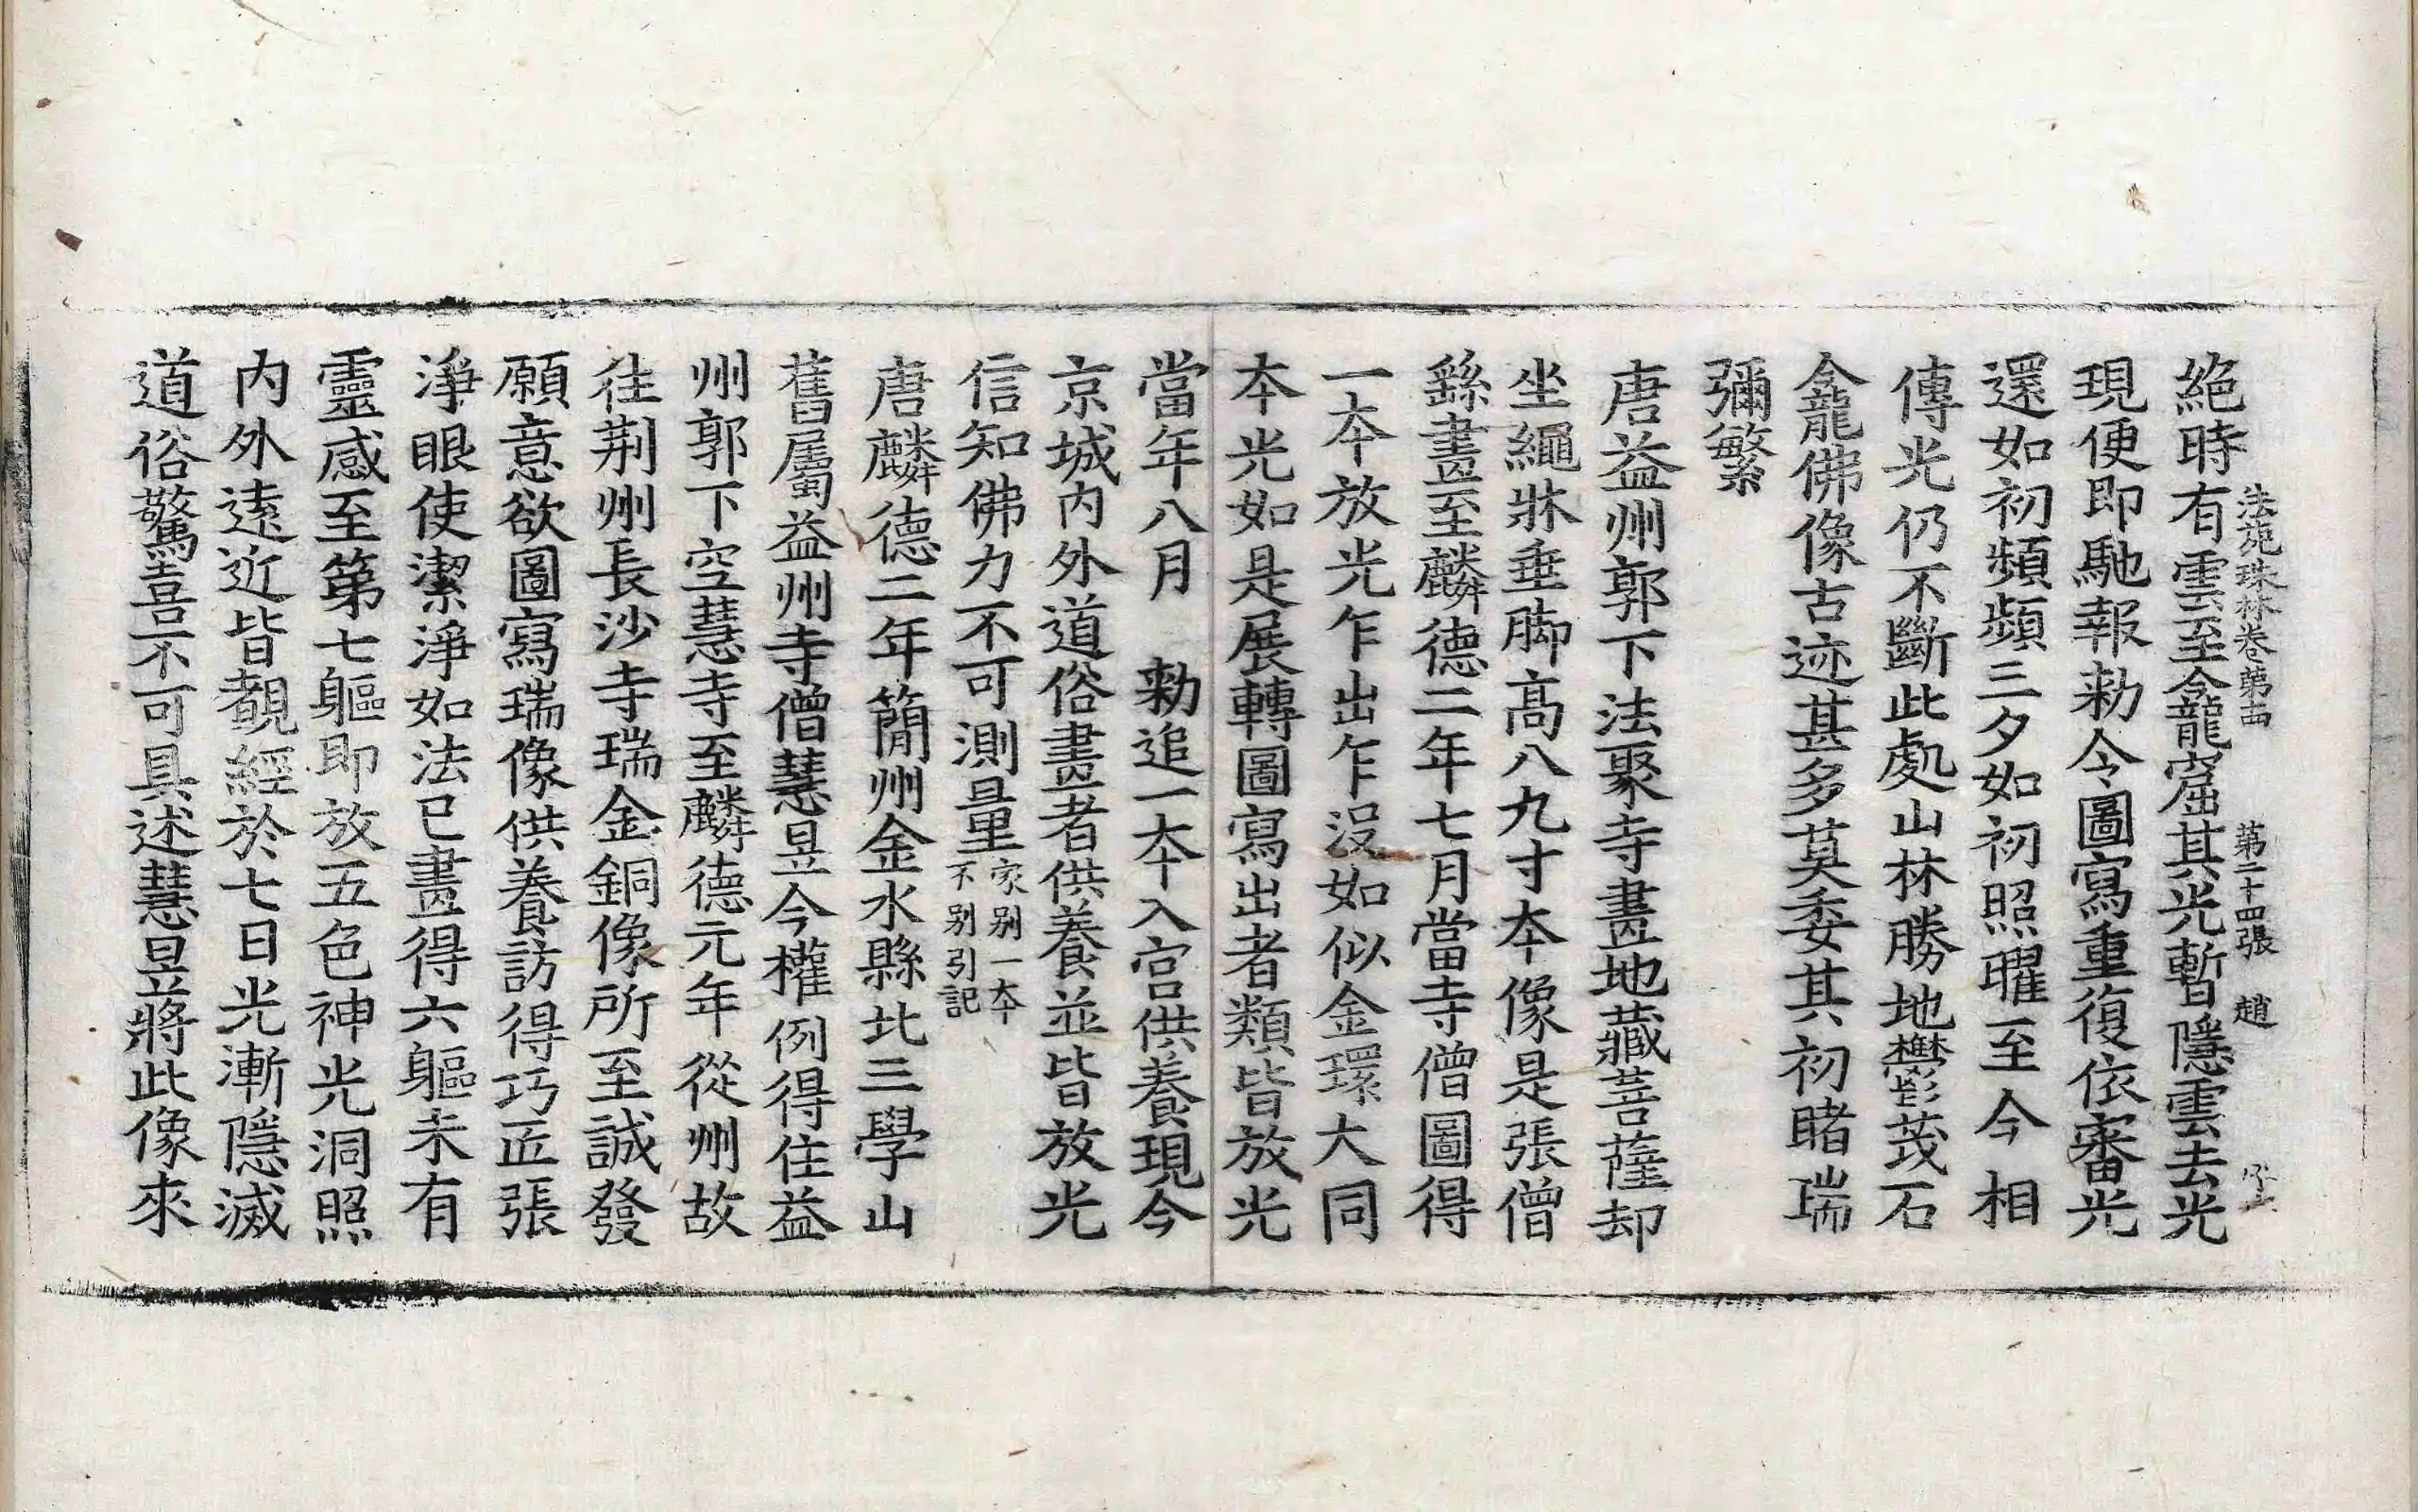 法苑珠林卷第十四 第二十四張 趙
絕時有雲至龕窟其光暫隱雲去光
現便即馳報勑令圖寫重復依審光
還如初頻頻三夕如初照曜至今相
傳光仍不斷此處山林勝地欝茂石
龕佛像古迹甚多莫委其初睹瑞
彌繁
唐益州郭下法聚寺畫地藏菩薩却
坐繩牀垂脚高八九寸本像是張僧
繇畫至麟德二年七月當寺僧圖得
一本放光乍出乍沒如似金環大同
本光如是展轉圖寫出者類皆放光
當年八月 勑追一本入宮供養現今
京城內外道俗畫者供養並皆放光
信知佛力不可測量家別一本不別引記
唐麟德二年簡州金水縣北三學山
舊屬益州寺僧慧昱今權例得住益
州郭下空慧寺至麟德元年從州故
往荊州長沙寺瑞金銅像所至誠發
願意欲圖寫瑞像供養訪得巧匠張
淨眼使潔淨如法已畫得六軀未有
靈感至第七軀即放五色神光洞照
內外遠近皆覩經於七日光漸隱滅
道俗驚喜不可具述慧昱將此像來